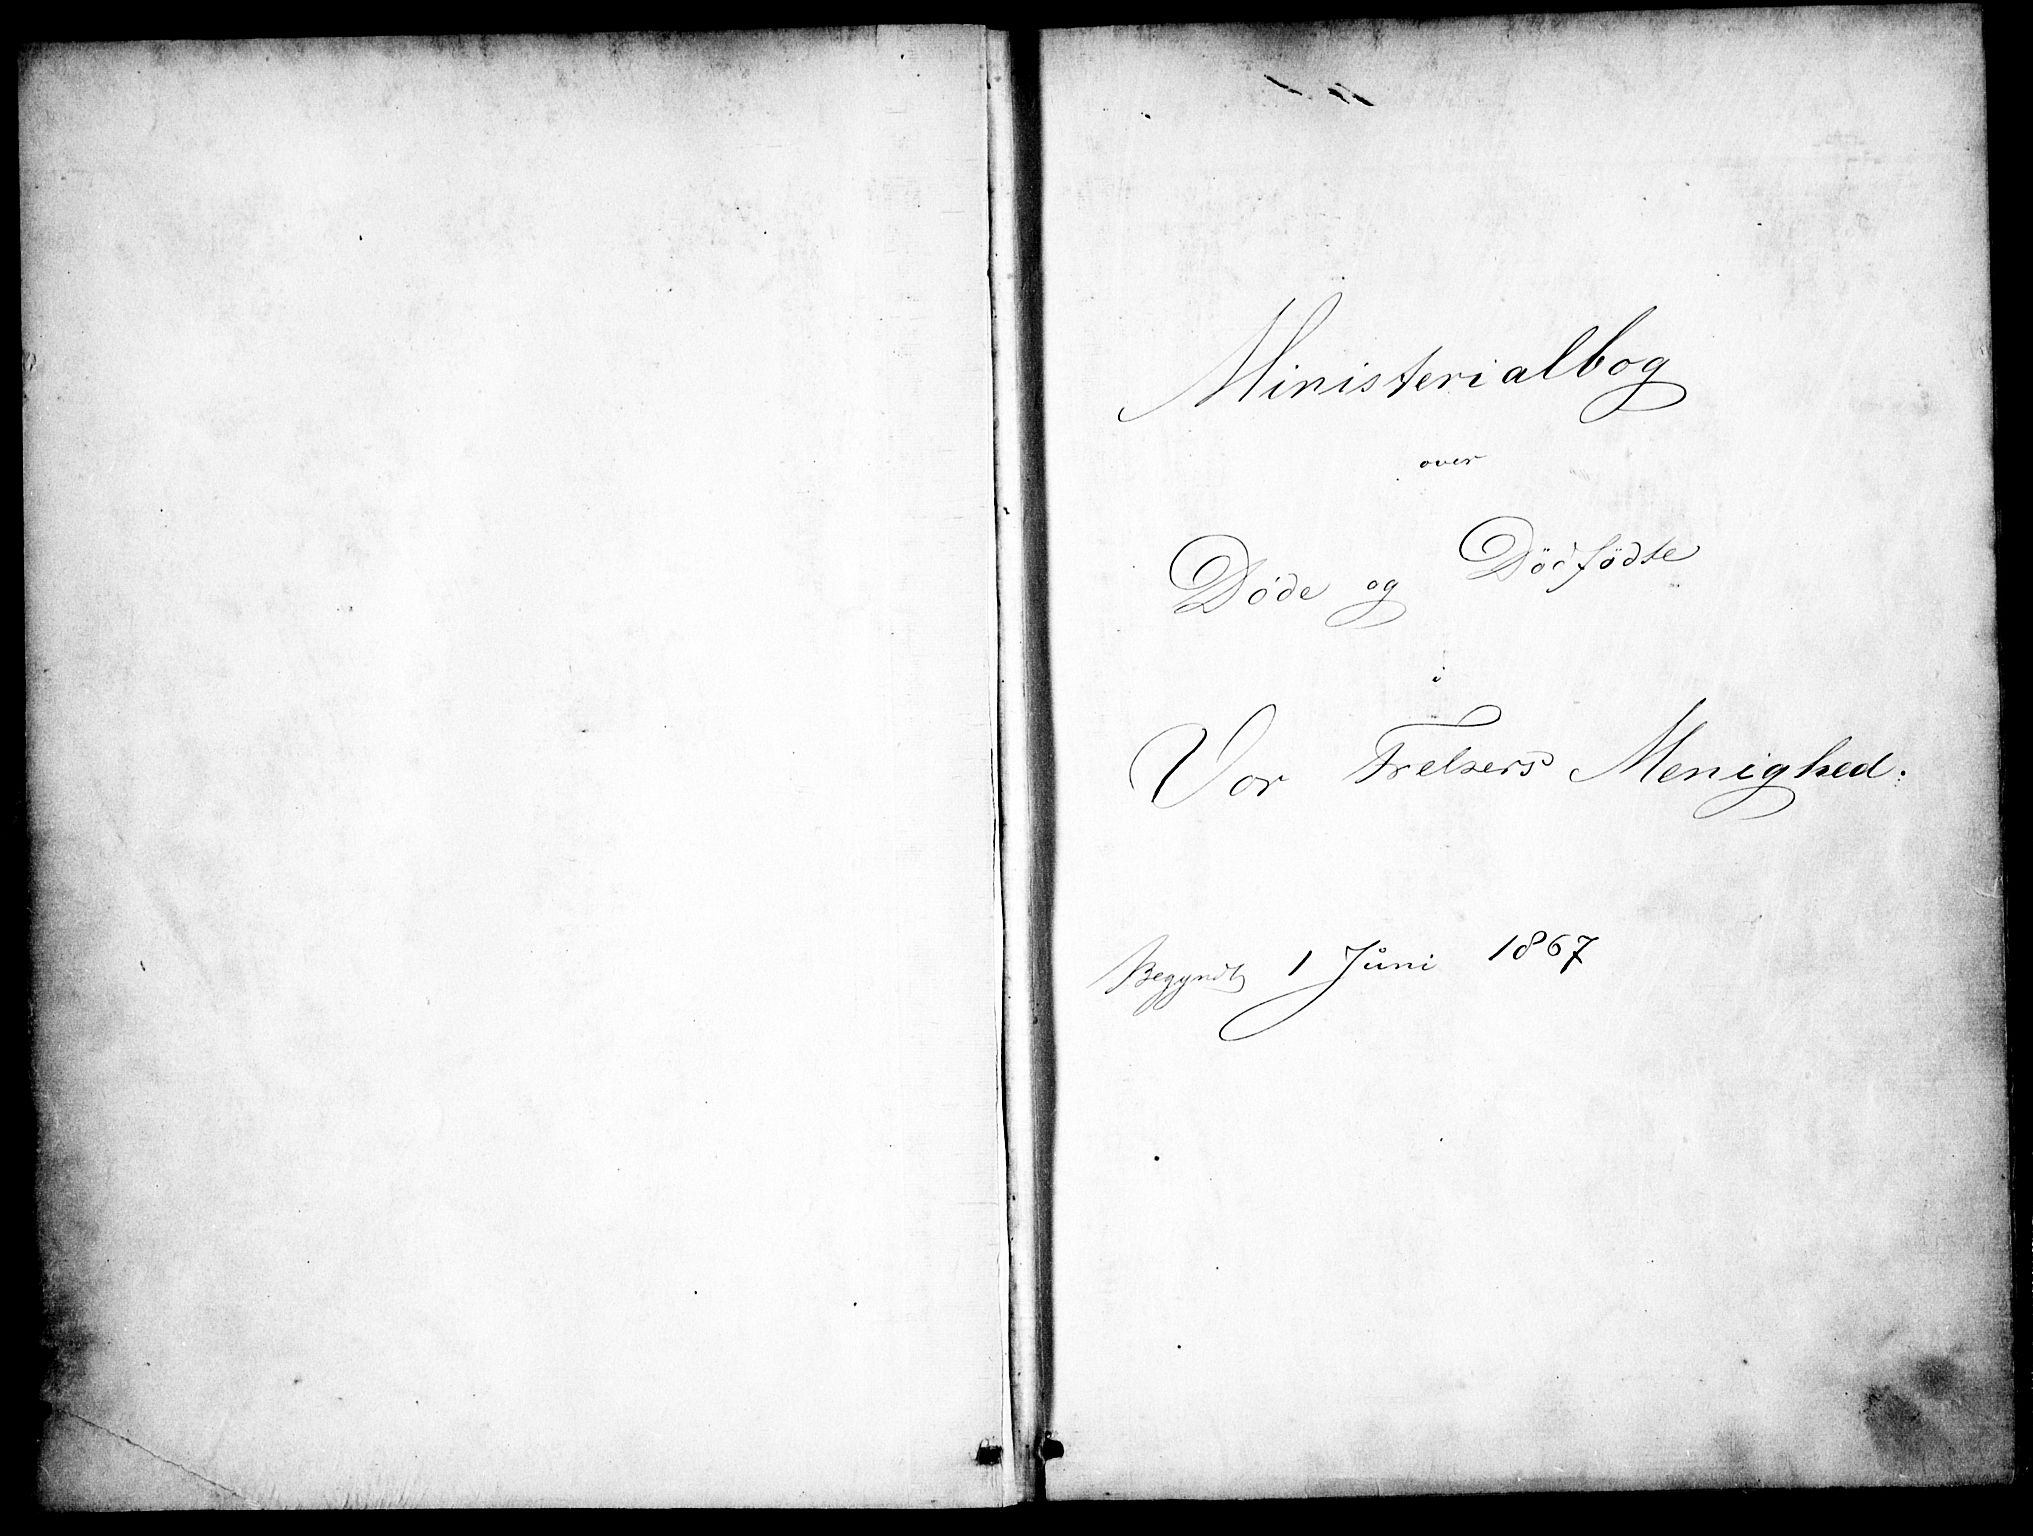 Ministerialbog
over
Døde og Dødfødte
i
Vor Frelsers Menighed.
Begyndt 1 Juni 1867